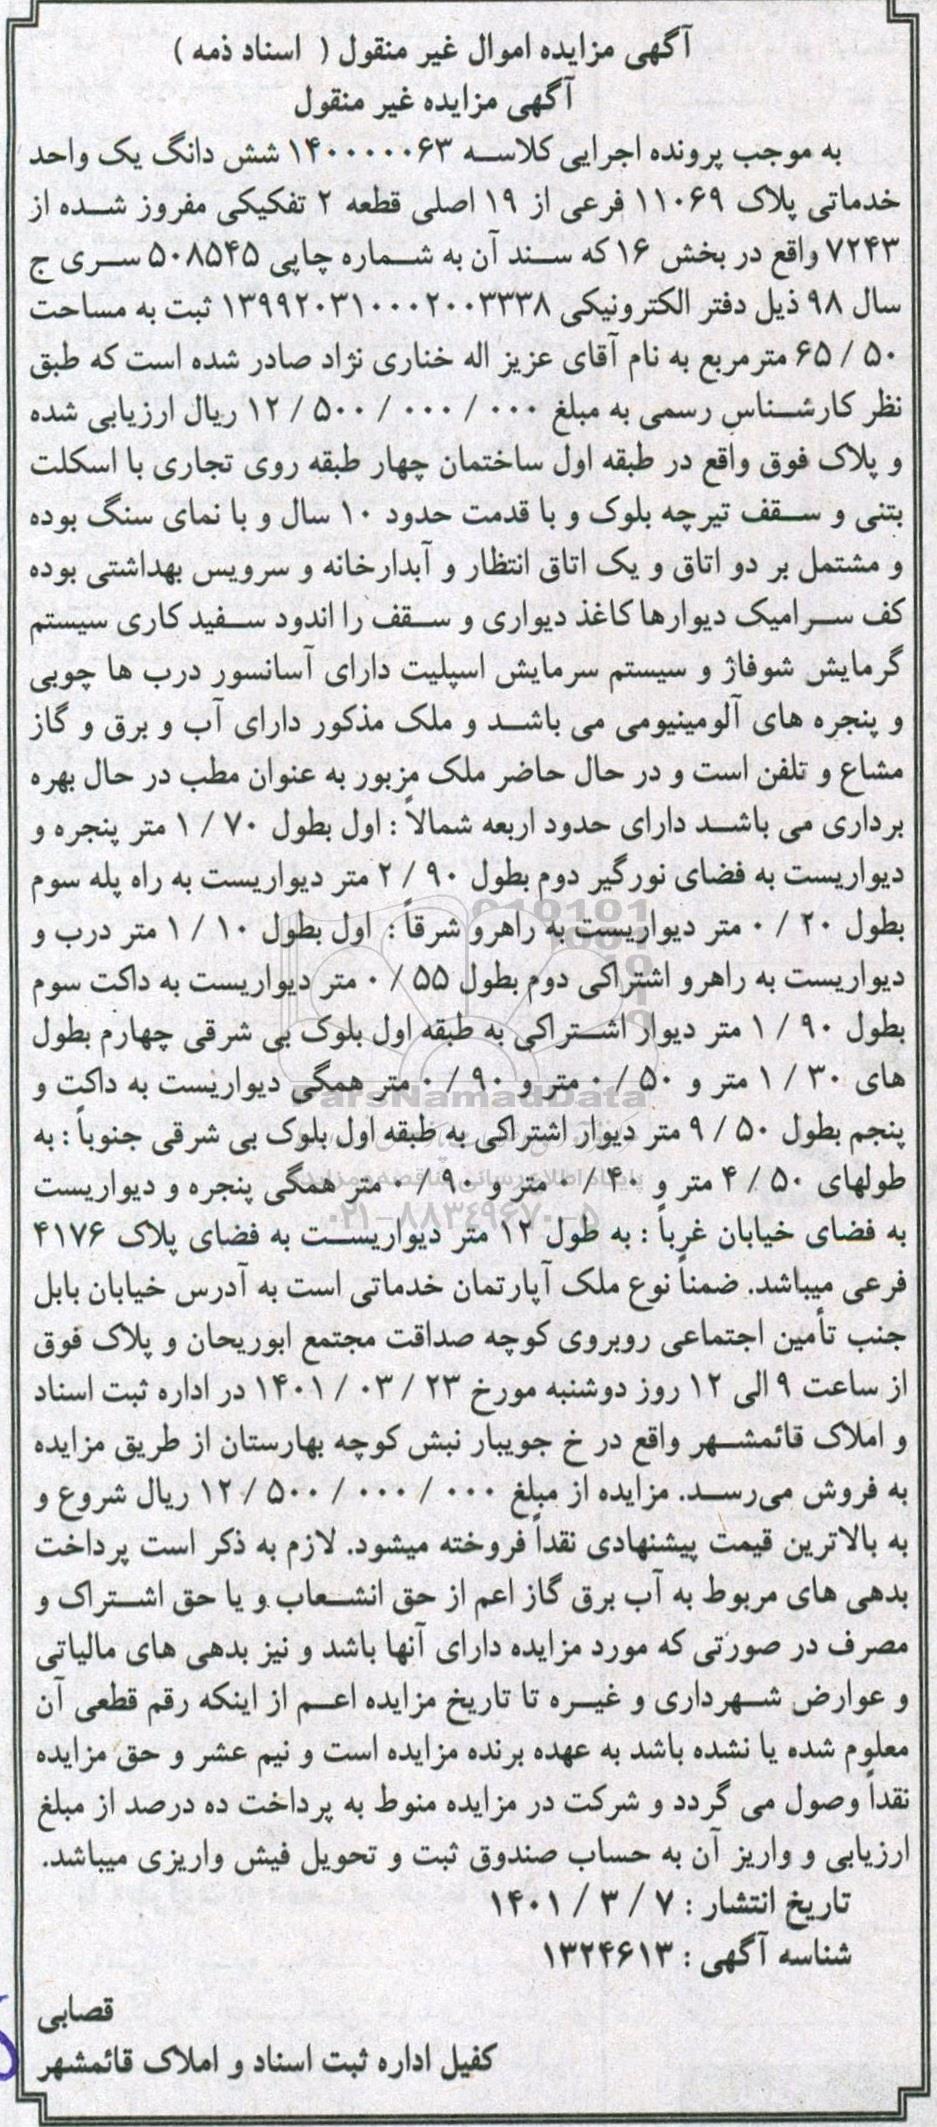 آگهی مزایده اموال غیر منقول ( اسناد ذمه )
آگهی مزایده غیر منقول
به موجب پرونده اجرایی کلاسه ۱۴۰۰۰۰۰۶۳ شش دانگ یک واحد
خدماتی پلاک ۱۱۰۶۹ فرعی از ۱۹ اصلی قطعه ۲ تفکیکی مفروز شده از
۷۲۴۳ واقع در بخش ۱۶ که سند آن به شماره چاپی ۵۰۸۵۴۵ سری ج
سال ۹۸ ذیل دفتر الکترونیکی ۱۳۹۹۲۰۳۱۰۰۰۲۰۰۳۳۳۸ ثبت به مساحت
۶۵ / ۵۰ مترمربع به نام آقای عزیز اله خناری نژاد صادر شده است که طبق
نظر کارشناس رسمی به مبلغ ۱۲ / ۵۰۰ / ۰۰۰ / ۰۰۰ ریال ارزیابی شده
و پلاک فوق واقع در طبقه اول ساختمان چهار طبقه روی تجاری با اسکلت
بتنی و سقف تیرچه بلوک و با قدمت حدود ۱۰ سال و با نمای سنگ بوده
و مشتمل بر دو اتاق و یک اتاق انتظار و آبدارخانه و سرویس بهداشتی بوده
کف سرامیک دیوارها کاغذ دیواری و سقف را اندود سفید کاری سیستم
گرمایش شوفاژ و سیستم سرمایش اسپلیت دارای آسانسور درب ها چوبی
و پنجره های آلومینیومی می باشد و ملک مذکور دارای آب و برق و گاز
مشاع و تلفن است و در حال حاضر ملک مزبور به عنوان مطب در حال بهره
برداری می باشد دارای حدود اربعه شمالاً : اول بطول ۱/۷۰ متر پنجره و
دیواریست به فضای نورگیر دوم بطول ۲/۹۰ متر دیواریست به راه پله سوم
بطول ۰/۲۰ متر دیواریست به راهرو شرقاً : اول بطول ۱/۱۰ متر درب و
دیواریست به راهرو اشتراکی دوم بطول ۰/۵۵ متر دیواریست به داکت سوم
بطول ۱/۹۰ متر دیوار اشتراکی به طبقه اول بلوک بی شرقی چهارم بطول
های ۱/۳۰ متر و ۰/۵۰ متر و ۰/۹۰ متر همگی دیواریست به داکت و
پنجم بطول ۹/۵۰ متر دیوار اشتراکی به طبقه اول بلوک بی شرقی جنوباً : به
طولهای ۴/۵۰ متر و ۰/۴۰ متر و ۰/۹۰ متر همگی پنجره و دیواریست
به فضای خیابان غرباً : به طول ۱۲ متر دیواریست به فضای پلاک ۴۱۷۶
فرعی میباشد. ضمناً نوع ملک آپارتمان خدماتی است به آدرس خیابان بابل
جنب تأمین اجتماعی روبروی کوچه صداقت مجتمع ابوریحان و پلاک فوق
از ساعت ۹ الی ۱۲ روز دوشنبه مورخ ۲۳ / ۰۳ / ۱۴۰۱ در اداره ثبت اسناد
و املاک قائمشهر واقع در خ جویبار نبش کوچه بهارستان از طریق مزایده
به فروش می‌رسد. مزایده از مبلغ ۱۲ / ۵۰۰ / ۰۰۰ / ۰۰۰ ریال شروع و
به بالاترین قیمت پیشنهادی نقداً فروخته میشود. لازم به ذکر است پرداخت
بدهی های مربوط به آب برق گاز اعم از حق انشعاب و یا حق اشتراک و
مصرف در صورتی که مورد مزایده دارای آنها باشد و نیز بدهی های مالیاتی
و عوارض شهرداری و غیره تا تاریخ مزایده اعم از اینکه رقم قطعی آن
معلوم شده یا نشده باشد به عهده برنده مزایده است و نیم عشر و حق مزایده
نقداً وصول می گردد و شرکت در مزایده منوط به پرداخت ده درصد از مبلغ
ارزیابی و واریز آن به حساب صندوق ثبت و تحویل فیش واریزی میباشد.
تاریخ انتشار : ۷ / ۳ / ۱۴۰۱
شناسه آگهی : ۱۳۲۴۶۱۳
قصابی
کفیل اداره ثبت اسناد و املاک قائمشهر
ParsNamadData
پایگاه اطلاع رسانی مناقصه و مزایده
۰۲۱-۸۸۳۴۹۶۷۰-۵